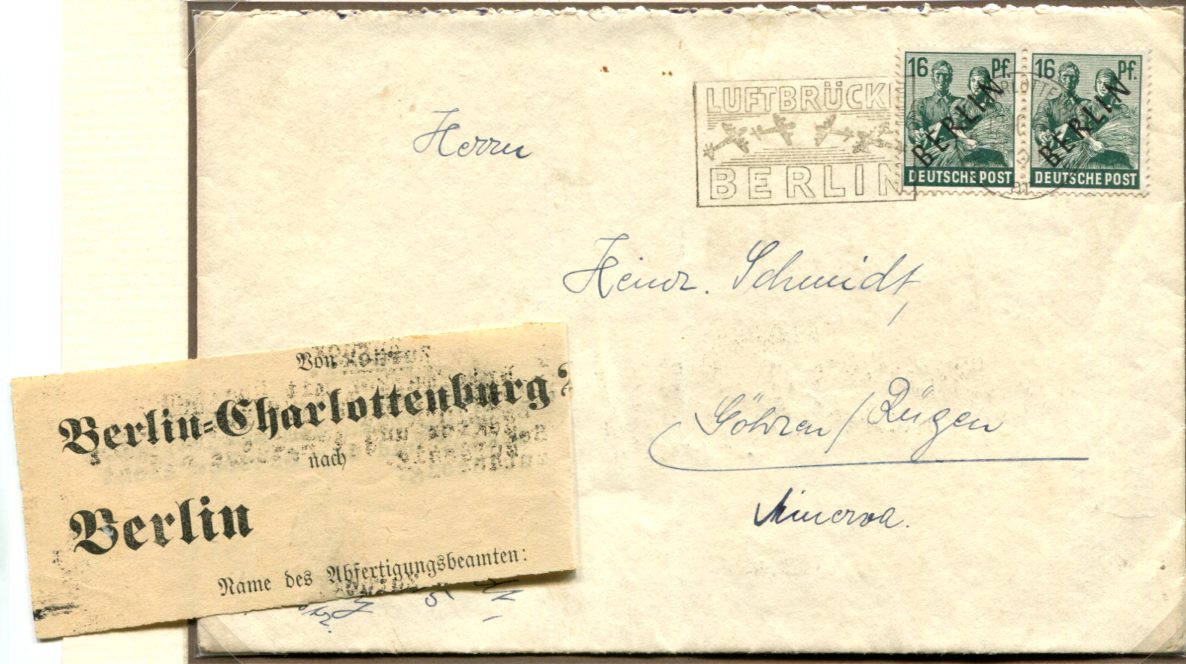 Herrn
LUFTBRÜCK
BERLIN
16 Pf. 16 Pf.
BERLIN BERLIN
DEUTSCHE POST DEUTSCHE POST
Heinz. Schmidt,
Göhren/Rügen
Minerva.
Von
Berlin=Charlottenburg 2
nach
Berlin
Name des Abfertigungsbeamten: